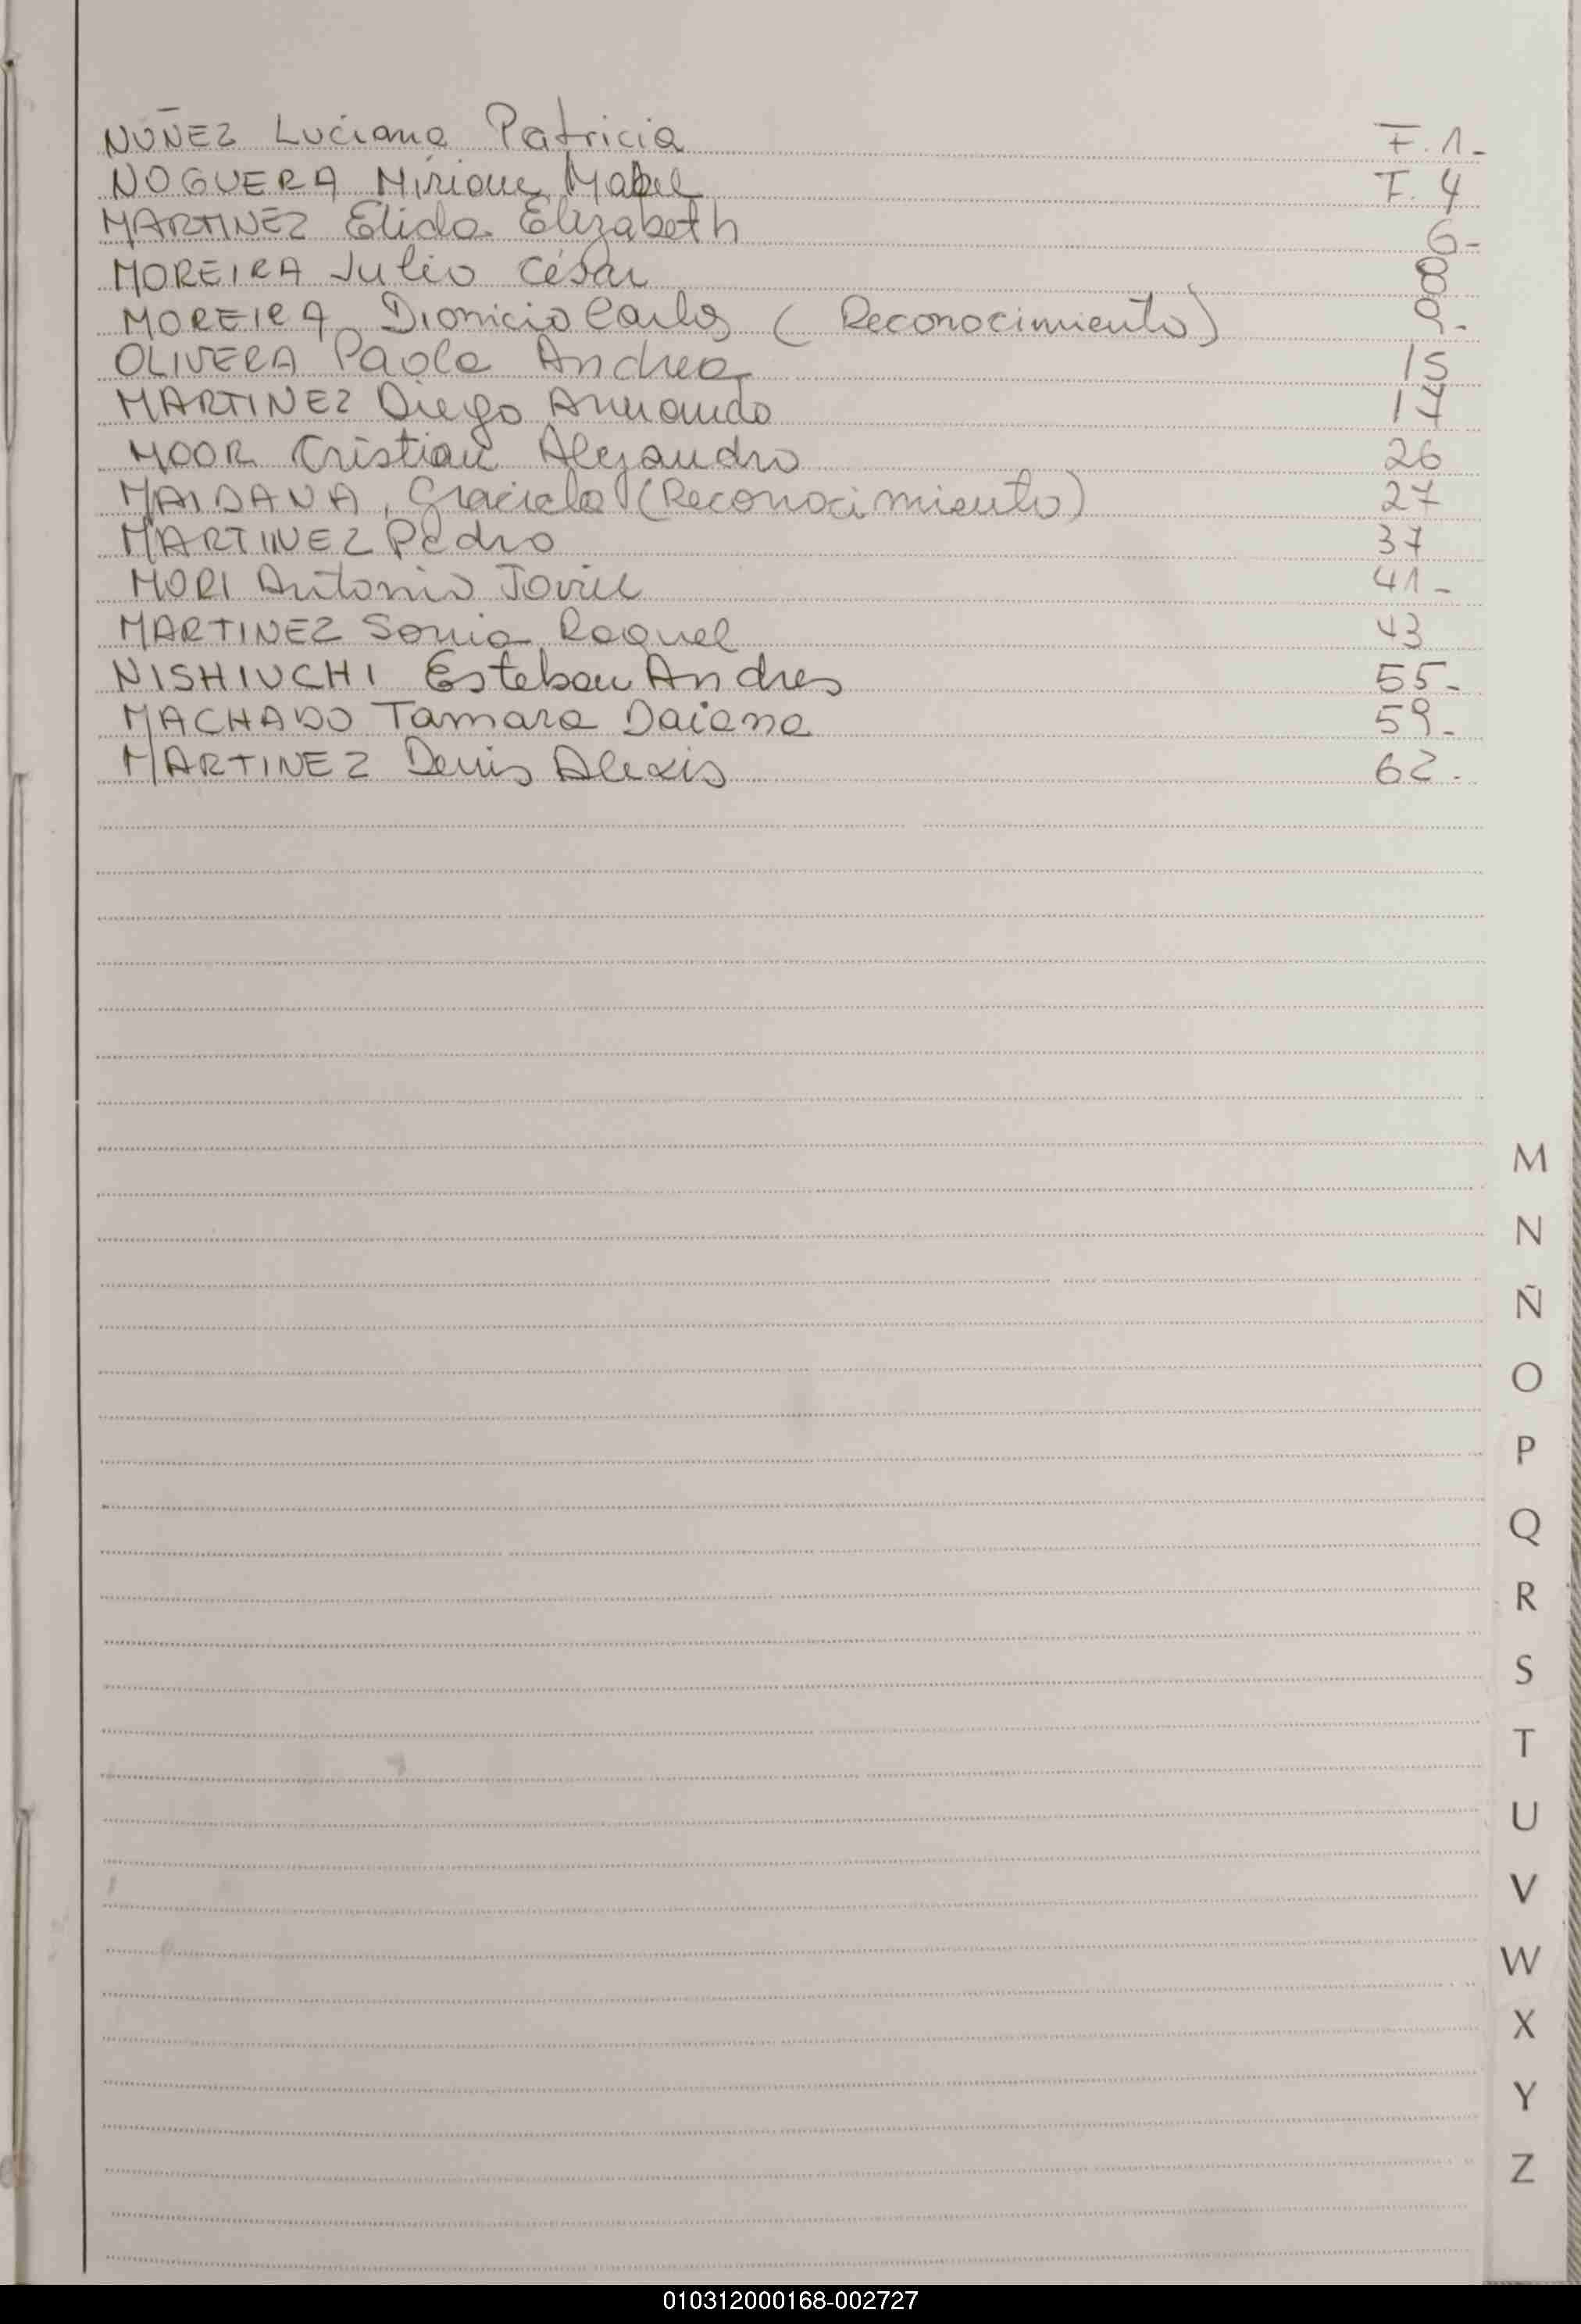 NUÑEZ Luciana Patricia F. 1-
NOGUERA Miriam Mabel F. 4
MARTINEZ Elida Elizabeth 6-
MOREIRA Julio César 8
MOREIRA Dionicio Carlos (Reconocimiento) 9-
OLIVERA Paola Andrea 15
MARTINEZ Diego Armando 17
MOOR Cristian Alejandro 26
MAIDANA, Graciela (Reconocimiento) 27
MARTINEZ Pedro 37
MORI Antonio 41-
MARTINEZ Sonia Raquel 43
NISHIUCHI Esteban Andres 55-
MACHADO Tamara Daiana 59-
MARTINEZ Denis Alexis 62-
M
N
Ñ
O
P
Q
R
S
T
U
V
W
X
Y
Z
010312000168-002727